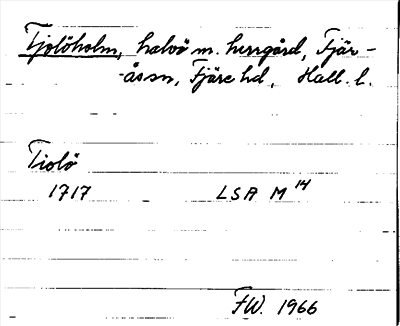 Tjolöholm, halvö m. herrgård, Fjär-
åssn, Fjäre hd, Hall. l.
Tiolö
1717 LSA M 14
FW. 1966